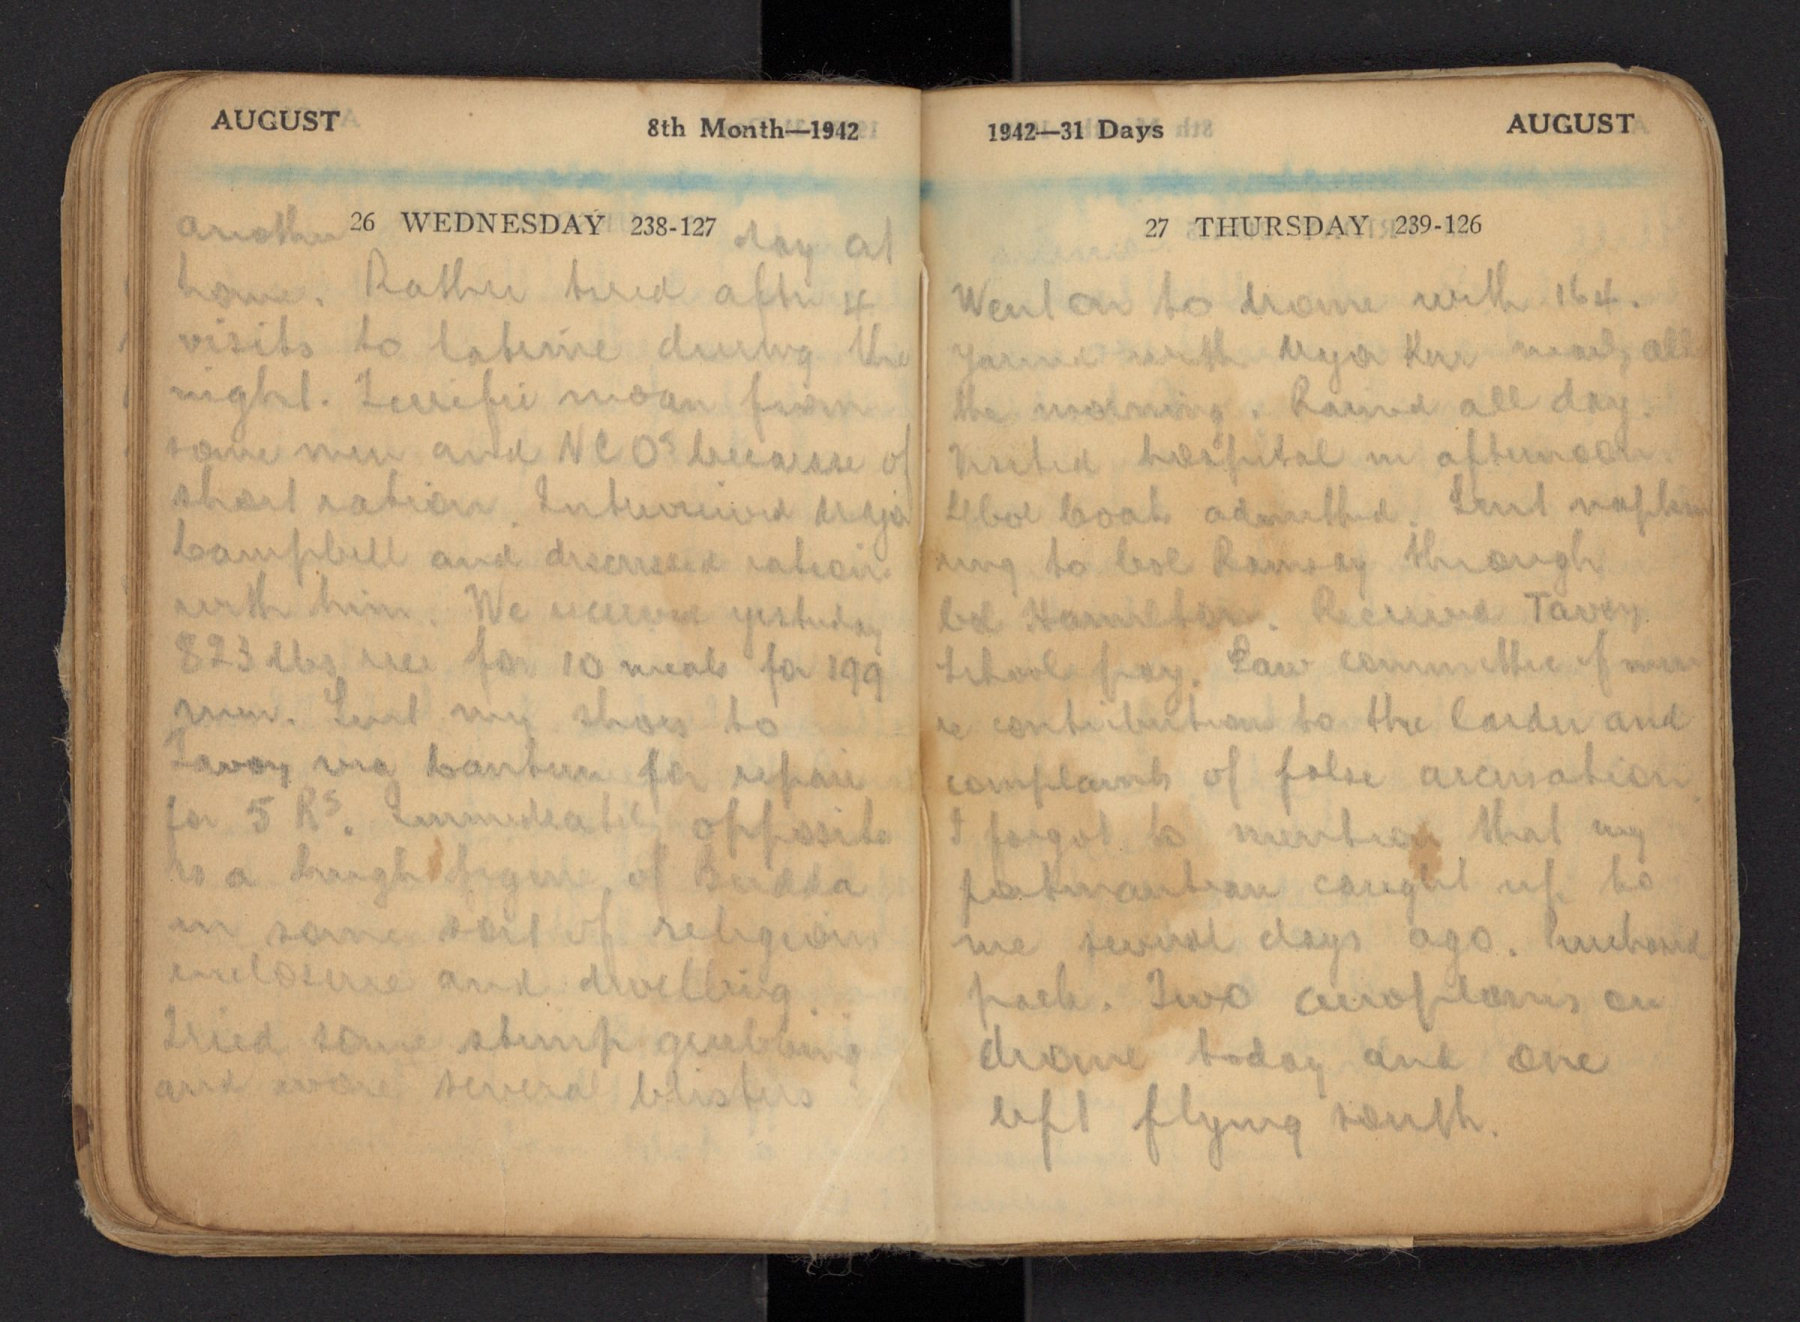 AUGUST 8th Month—1942
26 WEDNESDAY 238-127
another day at
home. Rather tired after 4
visits to latrine during the
night. Terrific moan from
some men and NCOs because of
short ration. Interviewed Major
Campbell and discussed ration
with him. We received yesterday
823 lbs rice for 10 meals for 199
men. Sent my shoes to
Tavoy via canteen for repair
for 5 Rs. Immediately opposite
is a hugh figure of Budda
in some sort of religious
enclosure and dwelling.
Tried some stump grubbing
and wore several blisters
1942—31 Days AUGUST
27 THURSDAY 239-126
Went on to drome with 164.
Yarned with Major Kerr nearly all
the morning. Rained all day.
Visited hospital in afternoon.
4 Col Coats admitted. Sent napkin
ring to Col Ramsay through
Col Hamilton. Received Tavoy
School pay. Saw committee of men
re contribution to the larder and
complaints of false accusation.
I forgot to mention that my
portmanteau caught up to
me several days ago. Purchased
pack. Two aeroplanes on
drome today and one
left flying south.